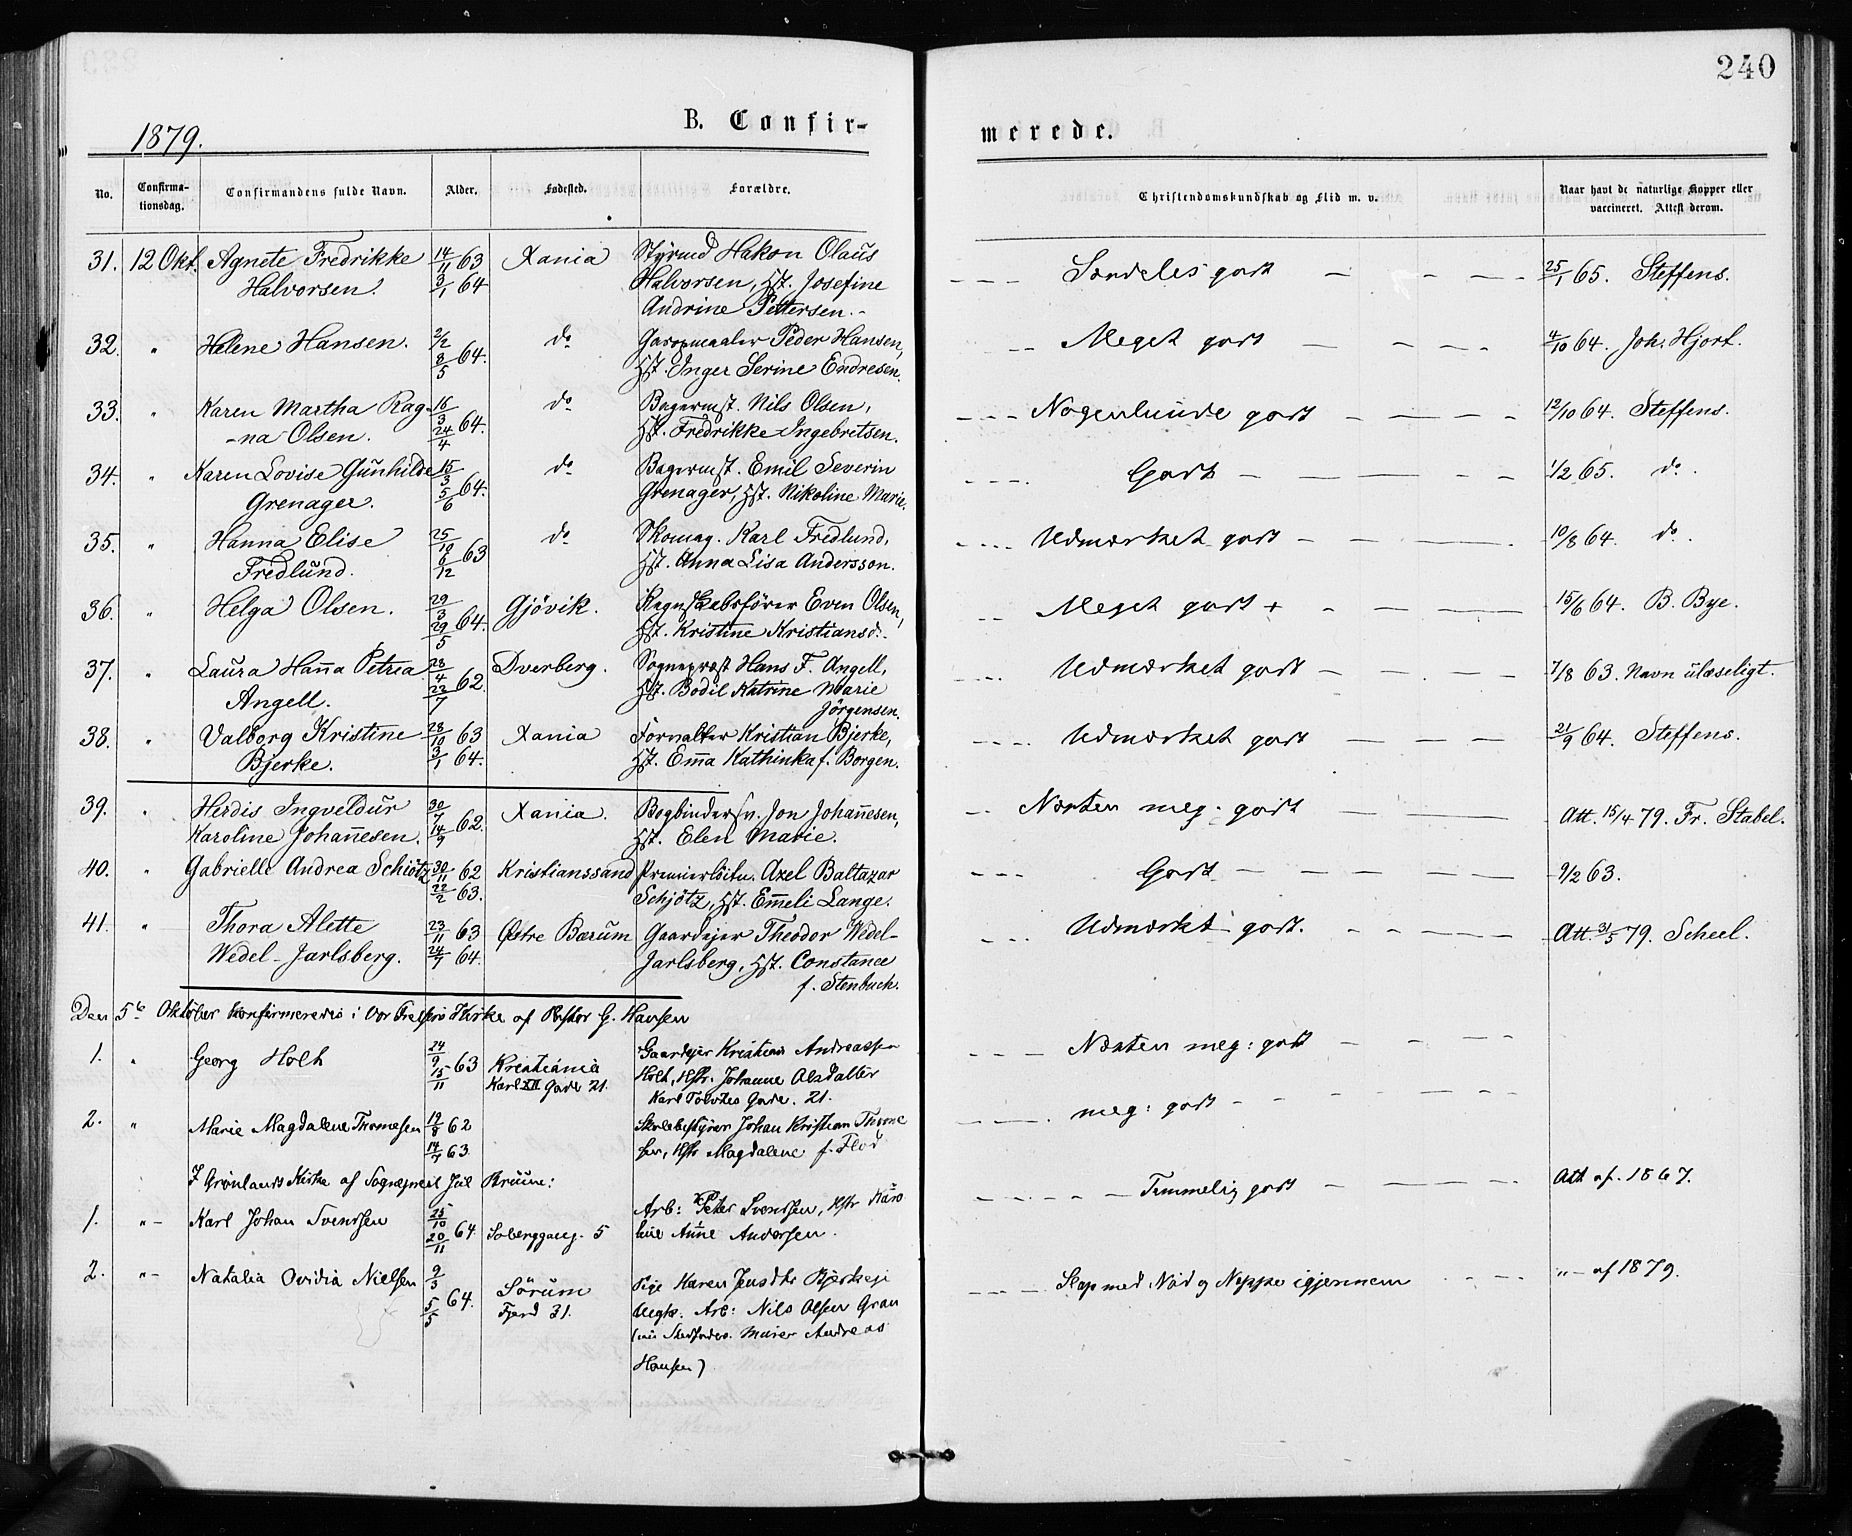 240
1879.
B. Confir-
merede.
No. Confirma-tionsdag. Confirmandens fulde Navn. Alder. Fødested. Forældre. Christendomskundskab og Flid m. v. Naar havt de naturlige Kopper eller vaccineret. Attest derom.
31. 12 Okt. Agnete Fredrikke 14/11 63 Xania Styrmd Hakon Olaus — — — Særdeles godt — — — — 25/1 65. Steffens.
Halvorsen. 3/1 64 Halvorsen, Hst. Josefine
Andrine Pettersen.
32. " Helene Hansen. 2/2 do Gasopmaaler Peder Hansen, — — Meget godt — — — — 4/10 64. Joh. Hjort.
8/5 64. Hst. Inger Serine Endresen.
33. " Karen Martha Rag- 16/3 do Bagermst. Nils Olsen, — — — Nogenlunde godt — — — — 12/10 64. Steffens.
-na Olsen. 24/4 64. Hst. Fredrikke Ingebretsen.
34. " Karen Lovise Gunhilde 15/3 do Bagermst. Emil Severin — — — Godt — — — — 1/2 65. do.
Grenager. 5/6 64. Grenager, Hst. Nikoline Marie.
35. " Hanna Elise 25/10 63 do Skomag. Karl Fredlund, — — — Udmærket godt — — — — 10/8 64. do.
Fredlund. 6/12 Hst. Anna Lisa Andersson.
36. " Helga Olsen. 29/3 Gjövik. Regnskabsförer Even Olsen, — — Meget godt + — — — — 15/6 64. B. Bye.
29/5 64. Hst. Kristine Kristiansd.
37. " Laura Hanna Petrea 28/4 Dverberg. Sognepræst Hans F. Angell, — — — Udmærket godt — — — — 7/8 63. Navn ulæseligt.
Angell. 22/7 62. Hst. Bodil Katrine Marie
Jörgensen.
38. " Valborg Kristine 28/10 63 Xania Forvalter Kristian Bjerke, — — — Udmærket godt — — — — 21/9 64. Steffens.
Bjerke. 3/1 64. Hst. Emma Kathinka f. Borgen.
39. " Herdis Ingveldur 30/7 Xania. Bogbindersv. Jon Johannesen, — Næsten meg. godt — — — Att. 15/4 79. Fr. Stabel.
Karoline Johannesen. 14/9 62. Hst. Elen Marie.
40. " Gabrielle Andrea Schiötz 30/11 62 Kristianssand Premierlöitn. Axel Baltazar — — — Godt — — — — 9/2 63.
22/2 63. Schjötz, Hst. Emmeli Lange.
41. " Thora Alette 23/11 63 Østre Bærum Gaardejer Theodor Wedel- — — — Udmærket godt. — — — — Att. 31/5 79. Scheel.
Wedel-Jarlsberg. 24/7 64. Jarlsberg, Hst. Constance
f. Stenbuch.
Den 5te Oktober konfirmeredes i Vor Frelsers Kirke af Pastor G. Hansen
1. " Georg Holt 24/9 63 Kristiania Gaardejer Kristian Andreassen — — — Næsten meg: godt — — — —
15/11 Karl XII Gade 21. Holt, Hstr. Johanne Olsdatter
Karl Tolvtes Gade. 21.
2. " Marie Magdalene Thomesen 19/8 62 Skolebestyrer Johan Kristian Thome — — — meg: godt — — — —
14/7 63 sen, Hstr Magdalene f. Flod
I Grønlands Kirke af Sogneprest Jul Bruun:
1. "— Karl Johan Svendsen 25/10 Arb: Peter Svendsen, Hstr Karo — — — Temmelig godt — — — — Att af 1867.
20/11 64. Soberggang. 5 line Anne Andersen.
2. "— Natalia Ovidia Nielsen 9/3 Sörum Pige Karen Jensdtr Bjerkeje — — — Slap med Nød og Neppe igjennem — — — "— af 1879.
5/5 64. Fjerd 31. Arb: Nils Olsen Gran
Murer Andreas
Hansen)